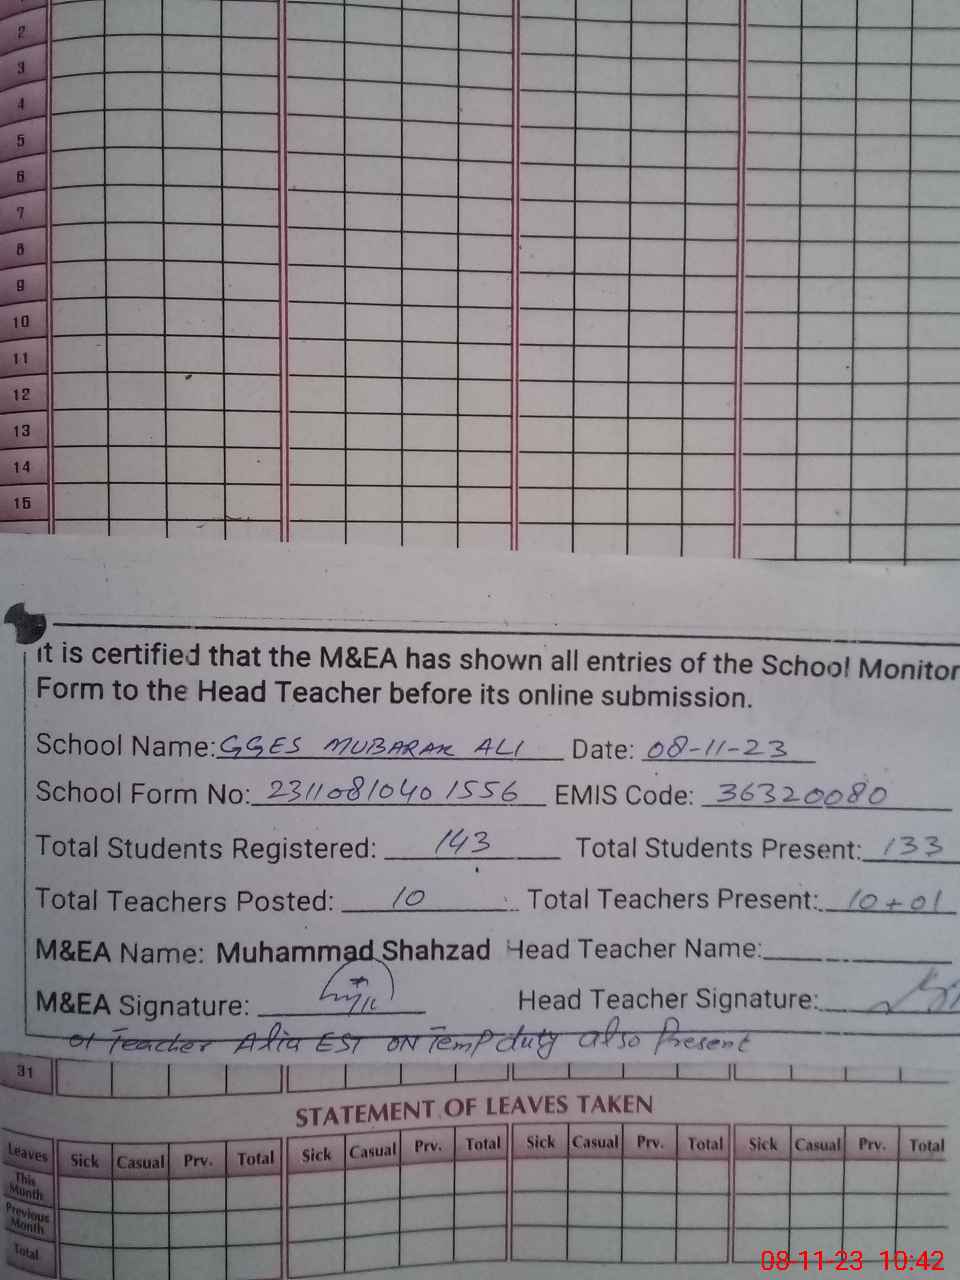 2
3
4
5
6
7
8
9
10
11
12
13
14
15
it is certified that the M&EA has shown all entries of the School Monitor
Form to the Head Teacher before its online submission.
School Name: GGES MUBARAK ALI Date: 08-11-23
School Form No: 2311081040 1556 EMIS Code: 36320080
Total Students Registered: 143 Total Students Present: 133
Total Teachers Posted: 10 Total Teachers Present: 10+01
M&EA Name: Muhammad Shahzad Head Teacher Name:
M&EA Signature: Head Teacher Signature:
01 Teacher Alia EST ON Temp duty also Present
31
STATEMENT OF LEAVES TAKEN
Leaves Sick Casual Prv. Total Sick Casual Prv. Total Sick Casual Prv. Total Sick Casual Prv. Total
This Month
Previous Month
Total
08-11-23 10:42